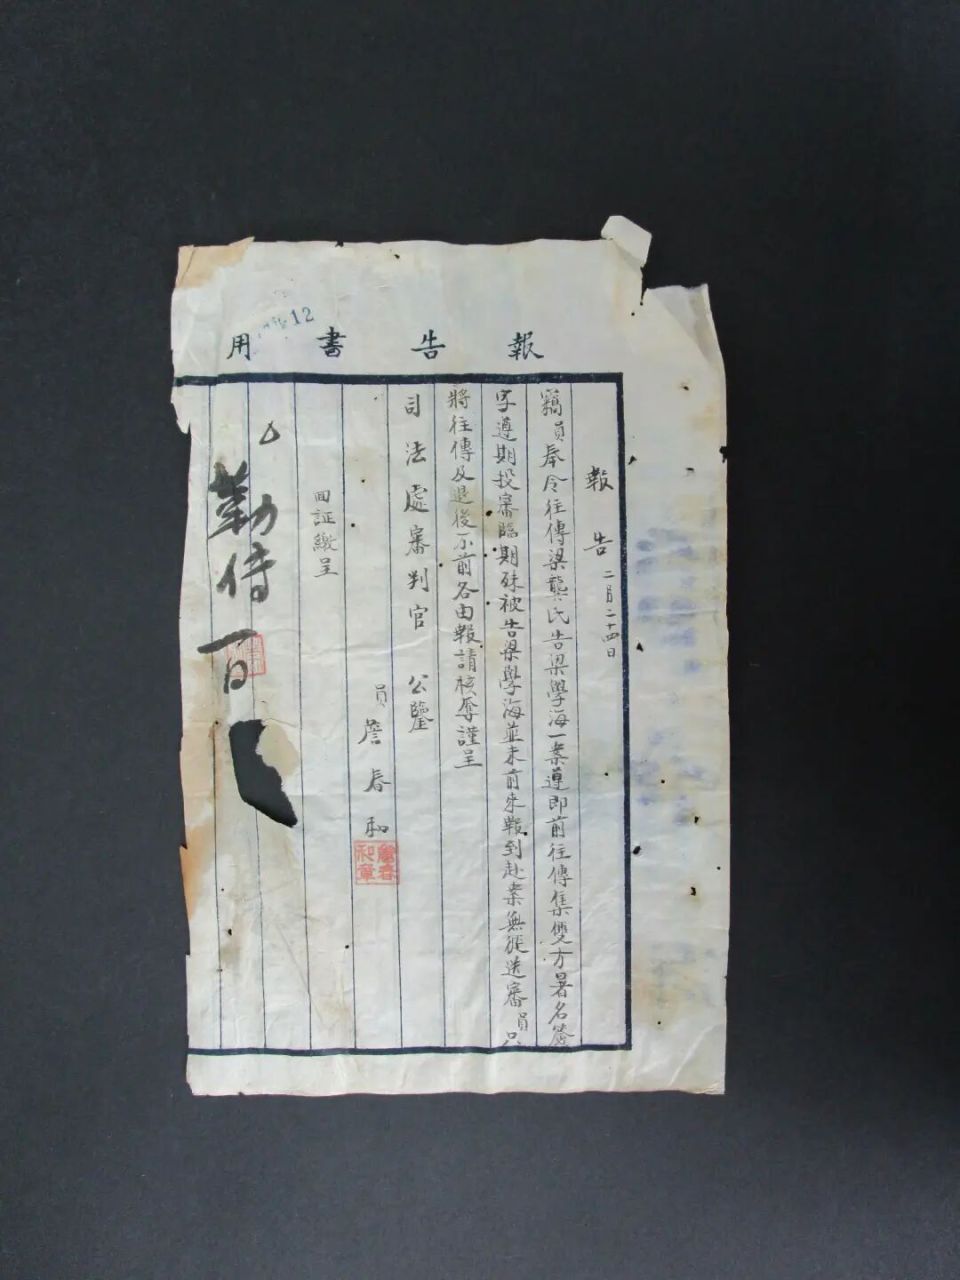 報告書用
12
報告 二月二十四日
竊員奉令往傳梁龔氏告梁學海一案遵即前往傳集雙方署名簽
字遵期投審臨期殊被告梁學海並未前來報到赴案無從送審員只
將往傳及退後不前各由報請核奪謹呈
司法處審判官 公鑒
員 詹春和
詹春和章
回証繳呈